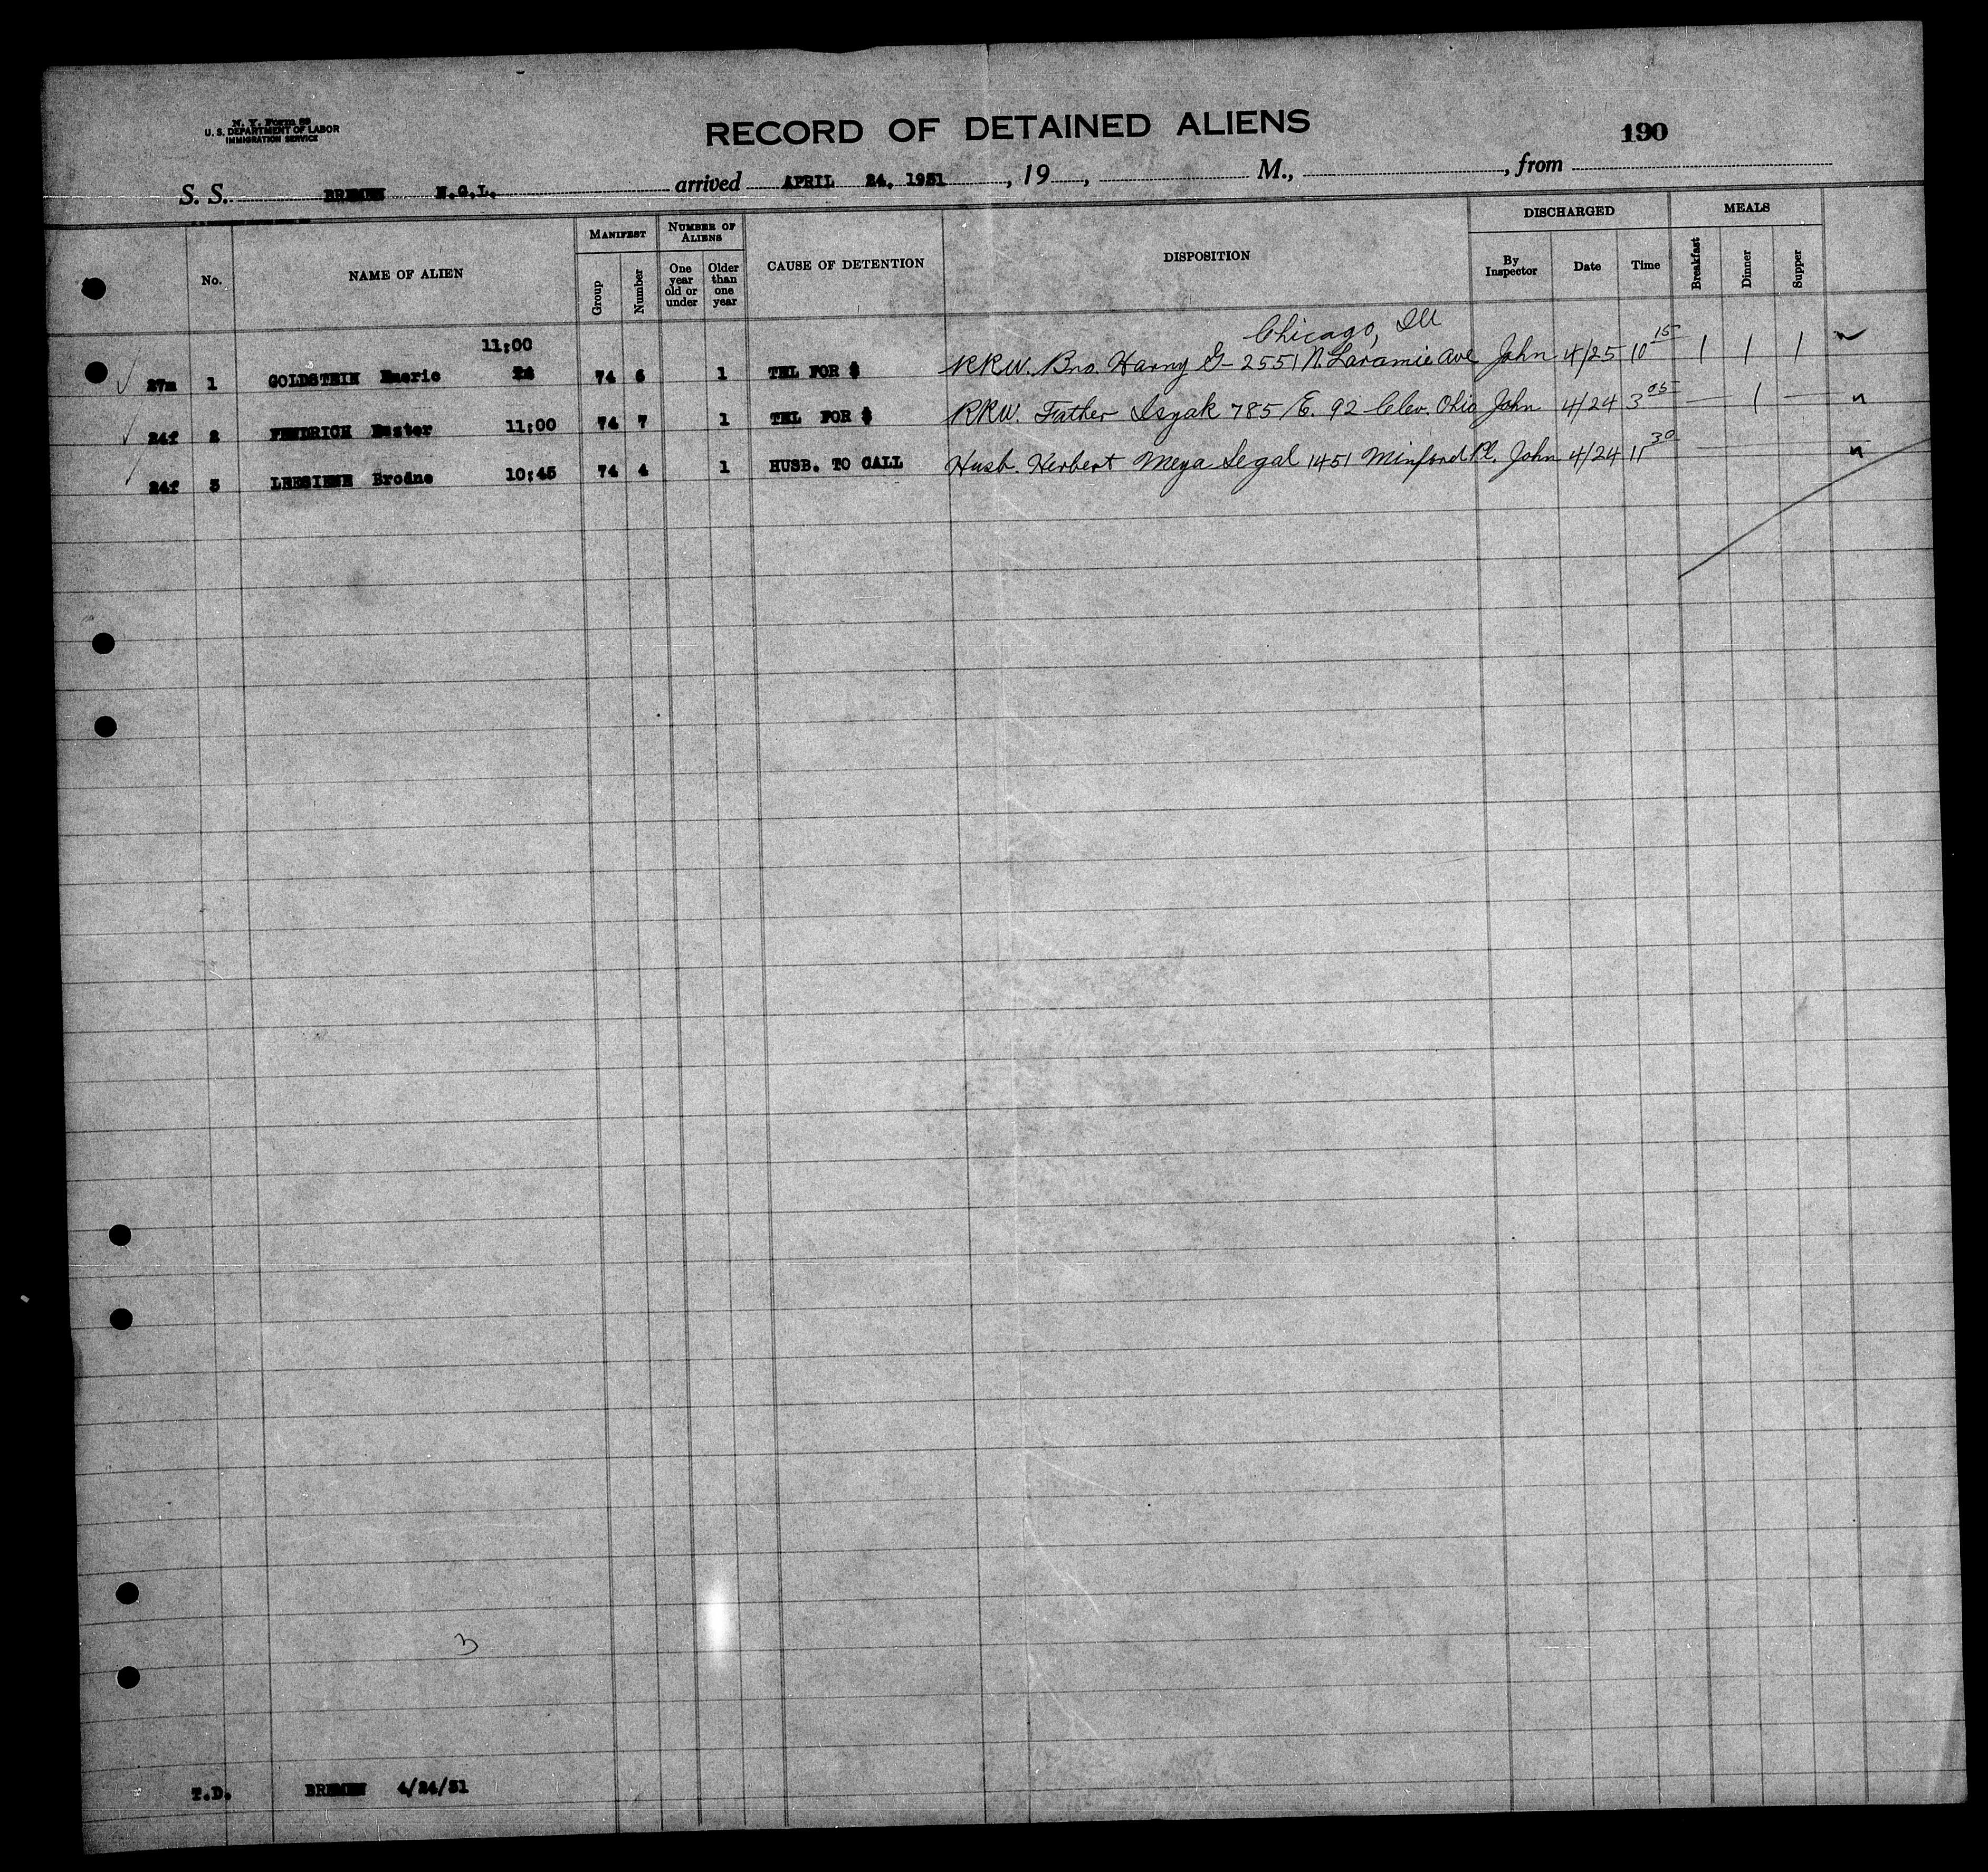 N. Y. Form 89
U. S. DEPARTMENT OF LABOR
IMMIGRATION SERVICE
RECORD OF DETAINED ALIENS
190
S. S. BREMEN N.G.L. arrived APRIL 24, 1931, 19 , M., , from
No. NAME OF ALIEN MANIFEST Group Number NUMBER OF ALIENS One year old or under Older than one year CAUSE OF DETENTION DISPOSITION DISCHARGED By Inspector Date Time MEALS Breakfast Dinner Supper
11;00 Chicago, Ill
27m 1 GOLDSTEIN Emeric 74 6 1 TEL FOR $ RRW. Bro. Harry G- 2551 N. Laramie Ave John 4/25 10 15 1 1 1
24f 2 FENDRICH Eszter 11:00 74 7 1 TEL FOR $ RRW. Father Isyak 785 E. 92 Clev. Ohio John 4/24 3 05 — 1 —
24f 3 Brodne 10;45 74 4 1 HUSB. TO CALL Husb. Herbert Meya Segal 1451 Minford Pl. John 4/24 11 30 —
3
T.D. BREMEN 4/24/31